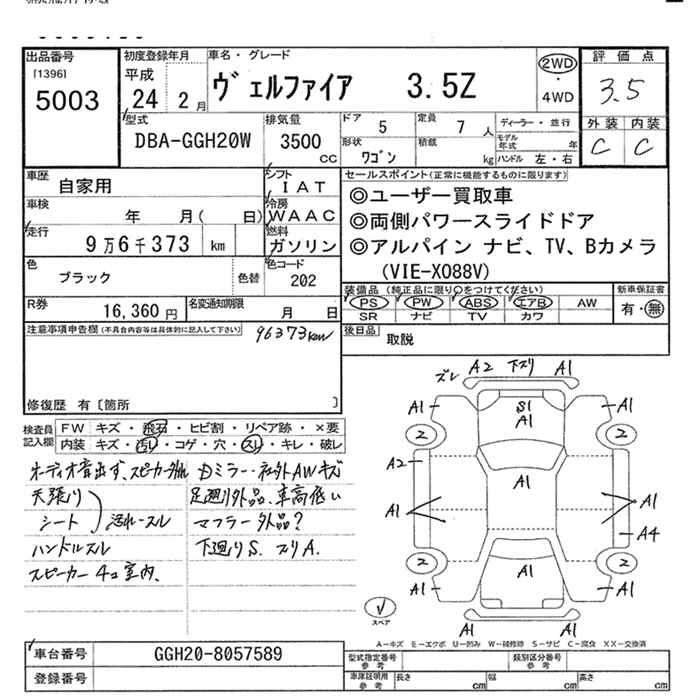 出品番号
[1396]
5003
初度登録年月
平成
24 2 月
車名・グレード
ヴェルファイア 3.5Z
2WD
・
4WD
評価点
3.5
外装 内装
C C
型式
DBA-GGH20W
排気量
3500
CC
ドア 5
定員 7 人
ディーラー・並行
モデル年式 年
形状 ワゴン
積載 kg
ハンドル 左・右
車歴
自家用
シフト
IAT
車検
年 月( 日)
冷房
WAAC
走行
9万6千373 km
燃料
ガソリン
色
ブラック
色替
色コード
202
R券
16,360 円
名変通知期限
月 日
セールスポイント(正常に機能するものに限ります)
◎ユーザー買取車
◎両側パワースライドドア
◎アルパイン ナビ、TV、Bカメラ
(VIE-X088V)
装備品(純正品に限り○をつけてください)
PS PW ABS エアB AW
SR ナビ TV カワ
新車保証書
有・無
後日品
取説
注意事項申告欄(不具合内容等は具体的に記入して下さい)
96373km
修復歴 有〔箇所 〕
検査員記入欄
FW キズ・飛石・ヒビ割・リペア跡・×要
内装 キズ・汚れ・コゲ・穴・スレ・キレ・破レ
オーディオ音出ず、スピーカー外れ
天張り
シート 汚れスル
ハンドルスル
スピーカー4コ室内、
Dミラー・社外AWキズ
足廻り外品、車高低い
マフラー外品?
下廻りS. スリA.
ズレ A2 下スリ A1
A1 S1 A1
A1
2 2
A2
A1 A1
A4
2 2
A1
A1 A1
A1
スペア
A－キズ M－エクボ U－凹み W－補修跡 S－サビ C－腐食 XX－交換済
車台番号
GGH20-8057589
登録番号
型式指定番号 参考
類別区分番号 参考
車庫証明用 参考
長さ cm
幅 cm
高さ cm